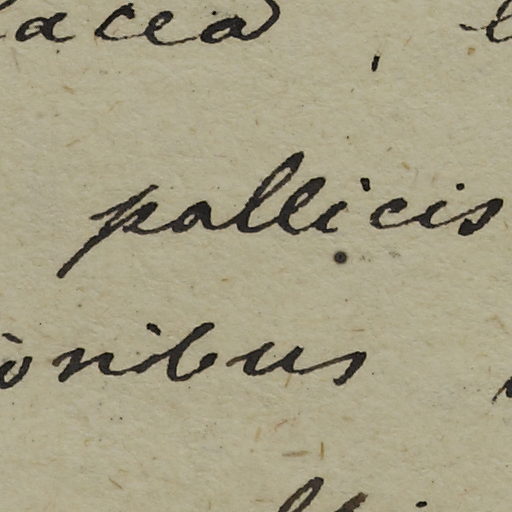 acea,
pollicis
onibus